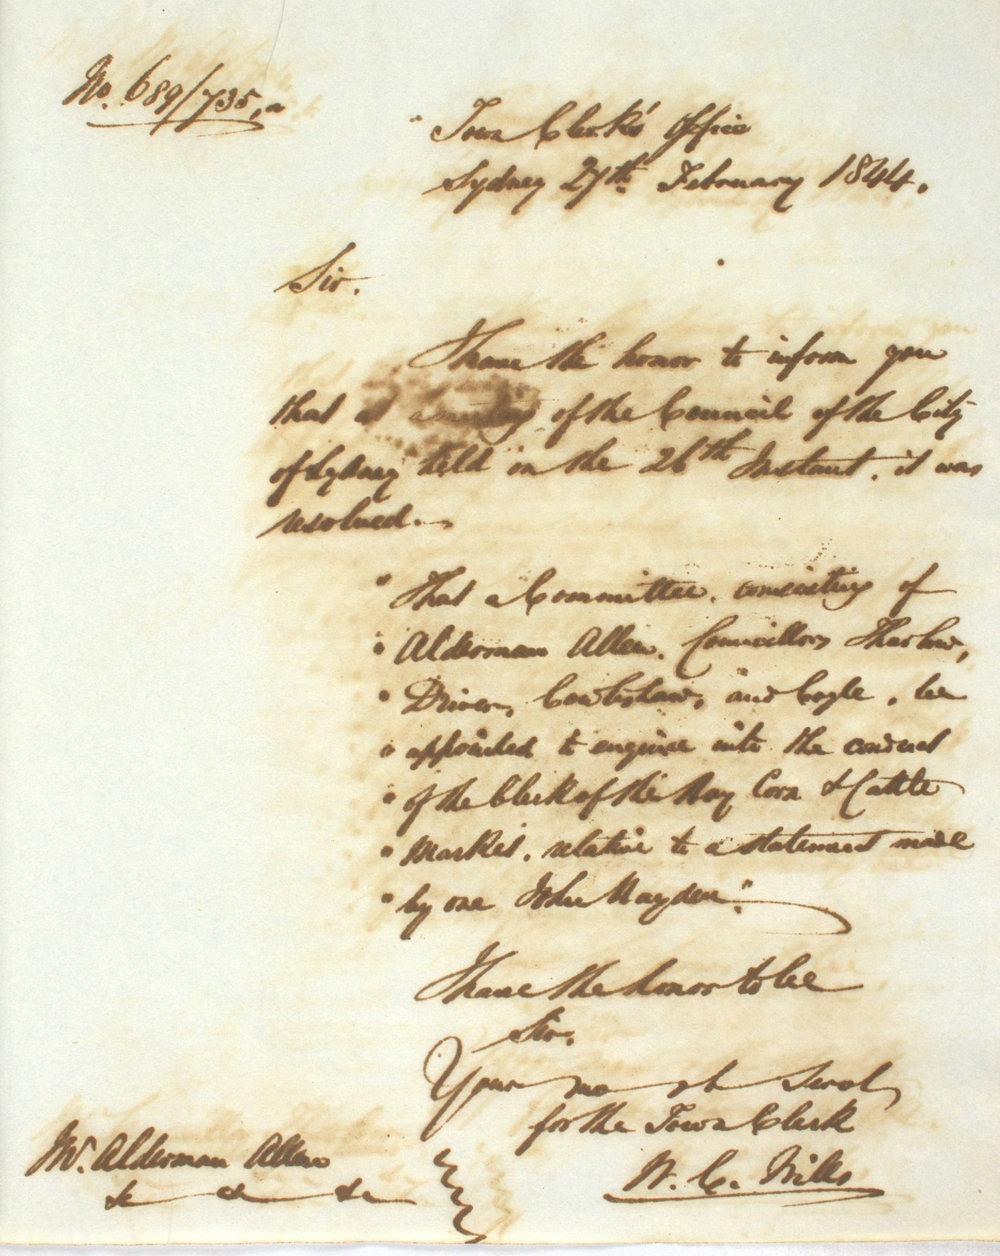 No. 689/735,a
Town Clerk's Office
Sydney 27th February 1844.
Sir.
I have the honor to inform you
that at a meeting of the Council of the City
of Sydney held on the 26th Instant, it was
resolved.
"That a Committee, consisting of
" Alderman Allen, Councillors Thurlow,
" Driver, and Coyle, be
" appointed to enquire into the conduct
" of the Clerk of the Hay Corn & Cattle
" Market, relative to a statement made
" by one John Hayden."
I have the honor to be
Sir,
Your mo obt Servt
for the Town Clerk
W. C. Wills
Mr. Alderman Allen
&c &c &c